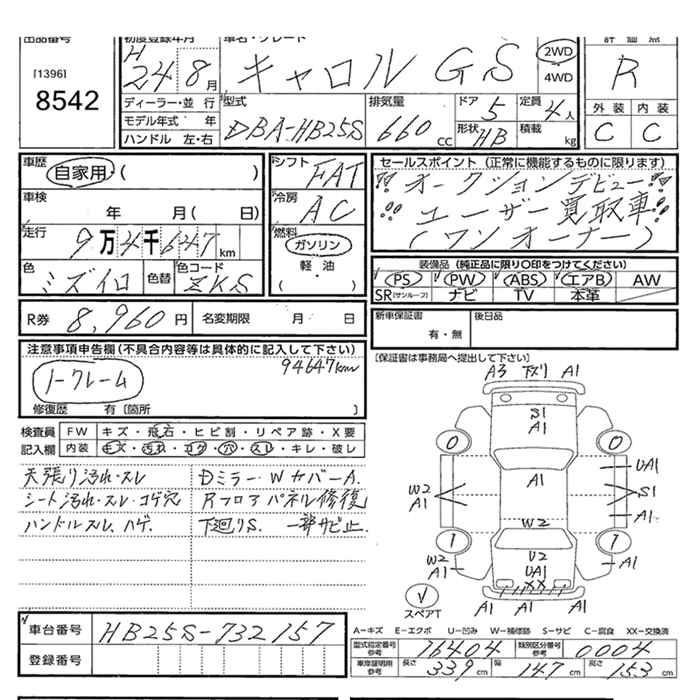 出品番号
[1396]
8542
初度登録年月
H
24 8月
車名・グレード
キャロル GS
2WD
4WD
評価点
R
ディーラー・並行
モデル年式 年
ハンドル 左・右
型式
DBA-HB25S
排気量
660 cc
ドア 5
形状 HB
定員 4人
積載 kg
外装 内装
C C
車歴
自家用・( )
車検
年 月( 日)
走行
9万4千647km
色
ミズイロ
色替
色コード
ZKS
シフト
FAT
冷房
AC
燃料
ガソリン
軽・油
( ・ )
セールスポイント(正常に機能するものに限ります)
!! オークションデビュー !!
!! ユーザー買取車 !!
(ワンオーナー)
装備品(純正品に限り○印をつけてください)
PS PW ABS エアB AW
SR(サンルーフ) ナビ TV 本革
R券 8,960円
名変期限 月 日
新車保証書
有・無
後日品
[保証書は事務局へ提出して下さい]
注意事項申告欄(不具合内容等は具体的に記入して下さい)
94647km
ノークレーム
修復歴 有[箇所 ]
検査員
記入欄
FW キズ・飛石・ヒビ割・リペア跡・X要
内装 キズ・汚れ・コゲ・穴・スレ・キレ・破レ
天張り汚れ・スレ
シート汚れ・スレ・コゲ穴
ハンドルスレ、ハゲ.
Dミラー・WカバーA.
Rフロアパネル修復
下廻りS. 一部サビ止.
A3 下ズリ A1
S1
A1
0 0
A1
UA1
W2
A1
S1
A1
W2
1 1
W2
A1
U2
UA1
XX
A1
A1 A1 A1
スペアT
車台番号
HB25S-732157
登録番号
A−キズ E−エクボ U−凹み W−補修跡 S−サビ C−腐食 XX−交換済
型式指定番号
参考
16404
類別区分番号
参考
0004
車庫証明用
参考
長さ 339cm
幅 147cm
高さ 153cm